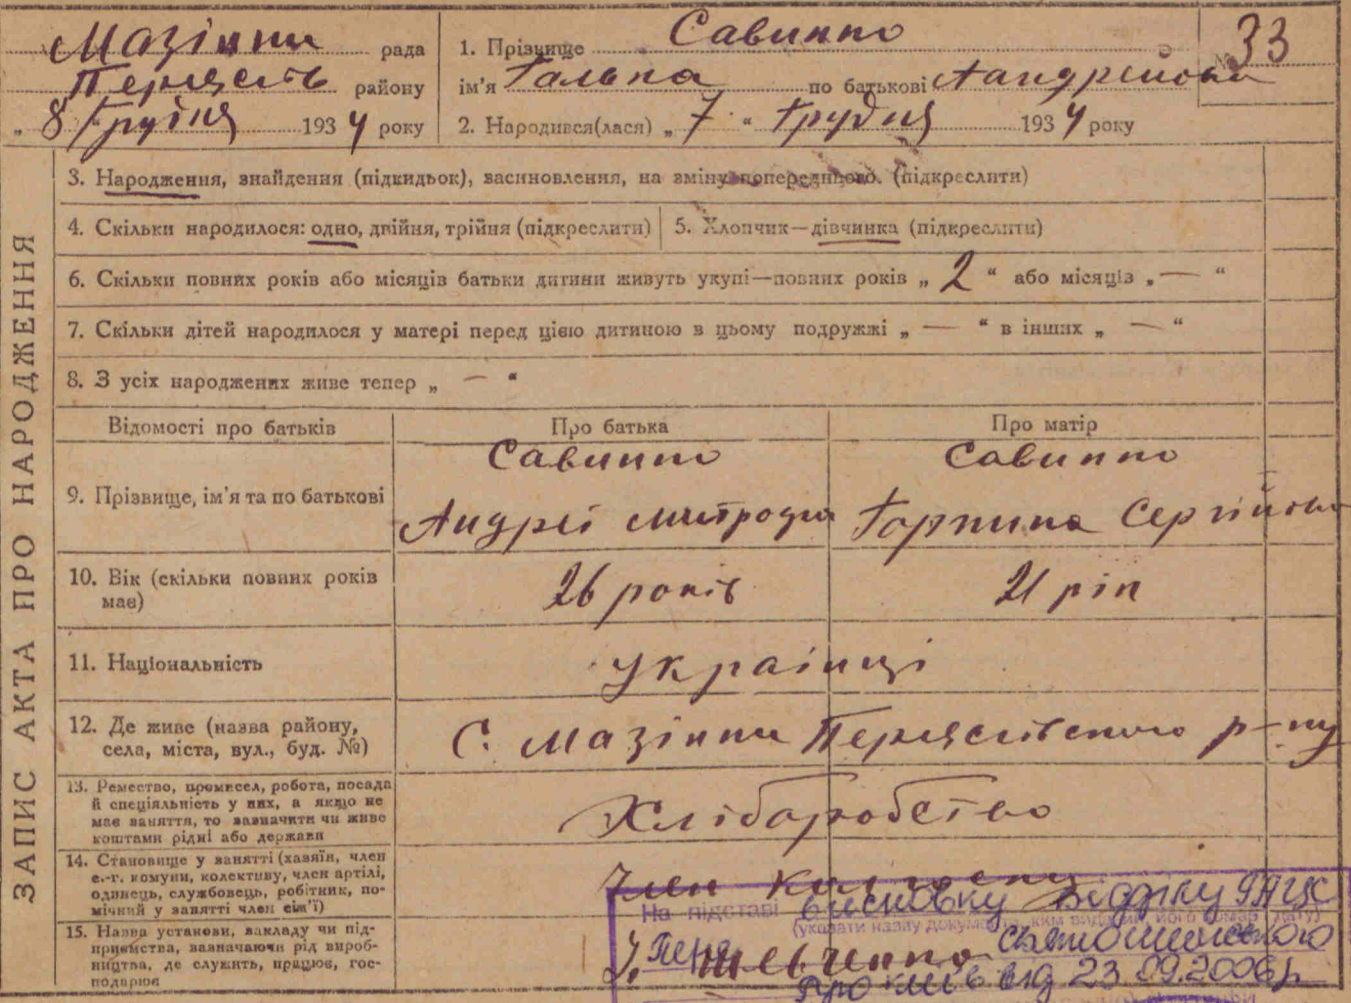 Мазінки рада
Переясів району
„ 8 Грудня 1934 року
1. Прізвище Савинко
№ 33
ім'я Галька по батькові Аандреивна
2. Народився(лася) „ 7 “ Грудня 1934 року
ЗАПИС АКТА ПРО НАРОДЖЕННЯ
3. Народження, знайдення (підкидьок), васиновлення, на зміну попереднього. (підкреслити)
4. Скільки народилося: одно, двійня, трійня (підкреслити)
5. Хлопчик—дівчинка (підкреслити)
6. Скільки повних років або місяців батьки дитини живуть укупі—повних років „ 2 “ або місяців „ — “
7. Скільки дітей народилося у матері перед цією дитиною в цьому подружжі „ — “ в інших „ — “
8. З усіх народжених живе тепер „ — “
Відомості про батьків
Про батька
Про матір
9. Прізвище, ім'я та по батькові
Савинко
Андреї
Савинко
Горпина Сергіївна
10. Вік (скільки повних років має)
26 років
21 рік
11. Національність
Українці
12. Де живе (назва району,
села, міста, вул., буд. №)
С. Мазінки р-ну
13. Ремество, промисел, робота, посада
й спеціяльність у них, а якщо не
має заняття, то зазначити чи живе
коштами рідні або держави
Хліборобство
14. Становище у занятті (хазяїн, член
с.-г. комуни, колективу, член артілі,
одинець, службовець, робітник, по-
мічний у занятті член сім'ї)
Член колгоспу
15. Назва установи, закладу чи під-
приємства, зазначаючи рід вироб-
ництва, де служить, працює, гос-
подарює
На підставі висновку Відділу РАЦС
(указати назву документа, ким виданий, його номер і дату)
Святошинського
Київ від 23.09.2006р.